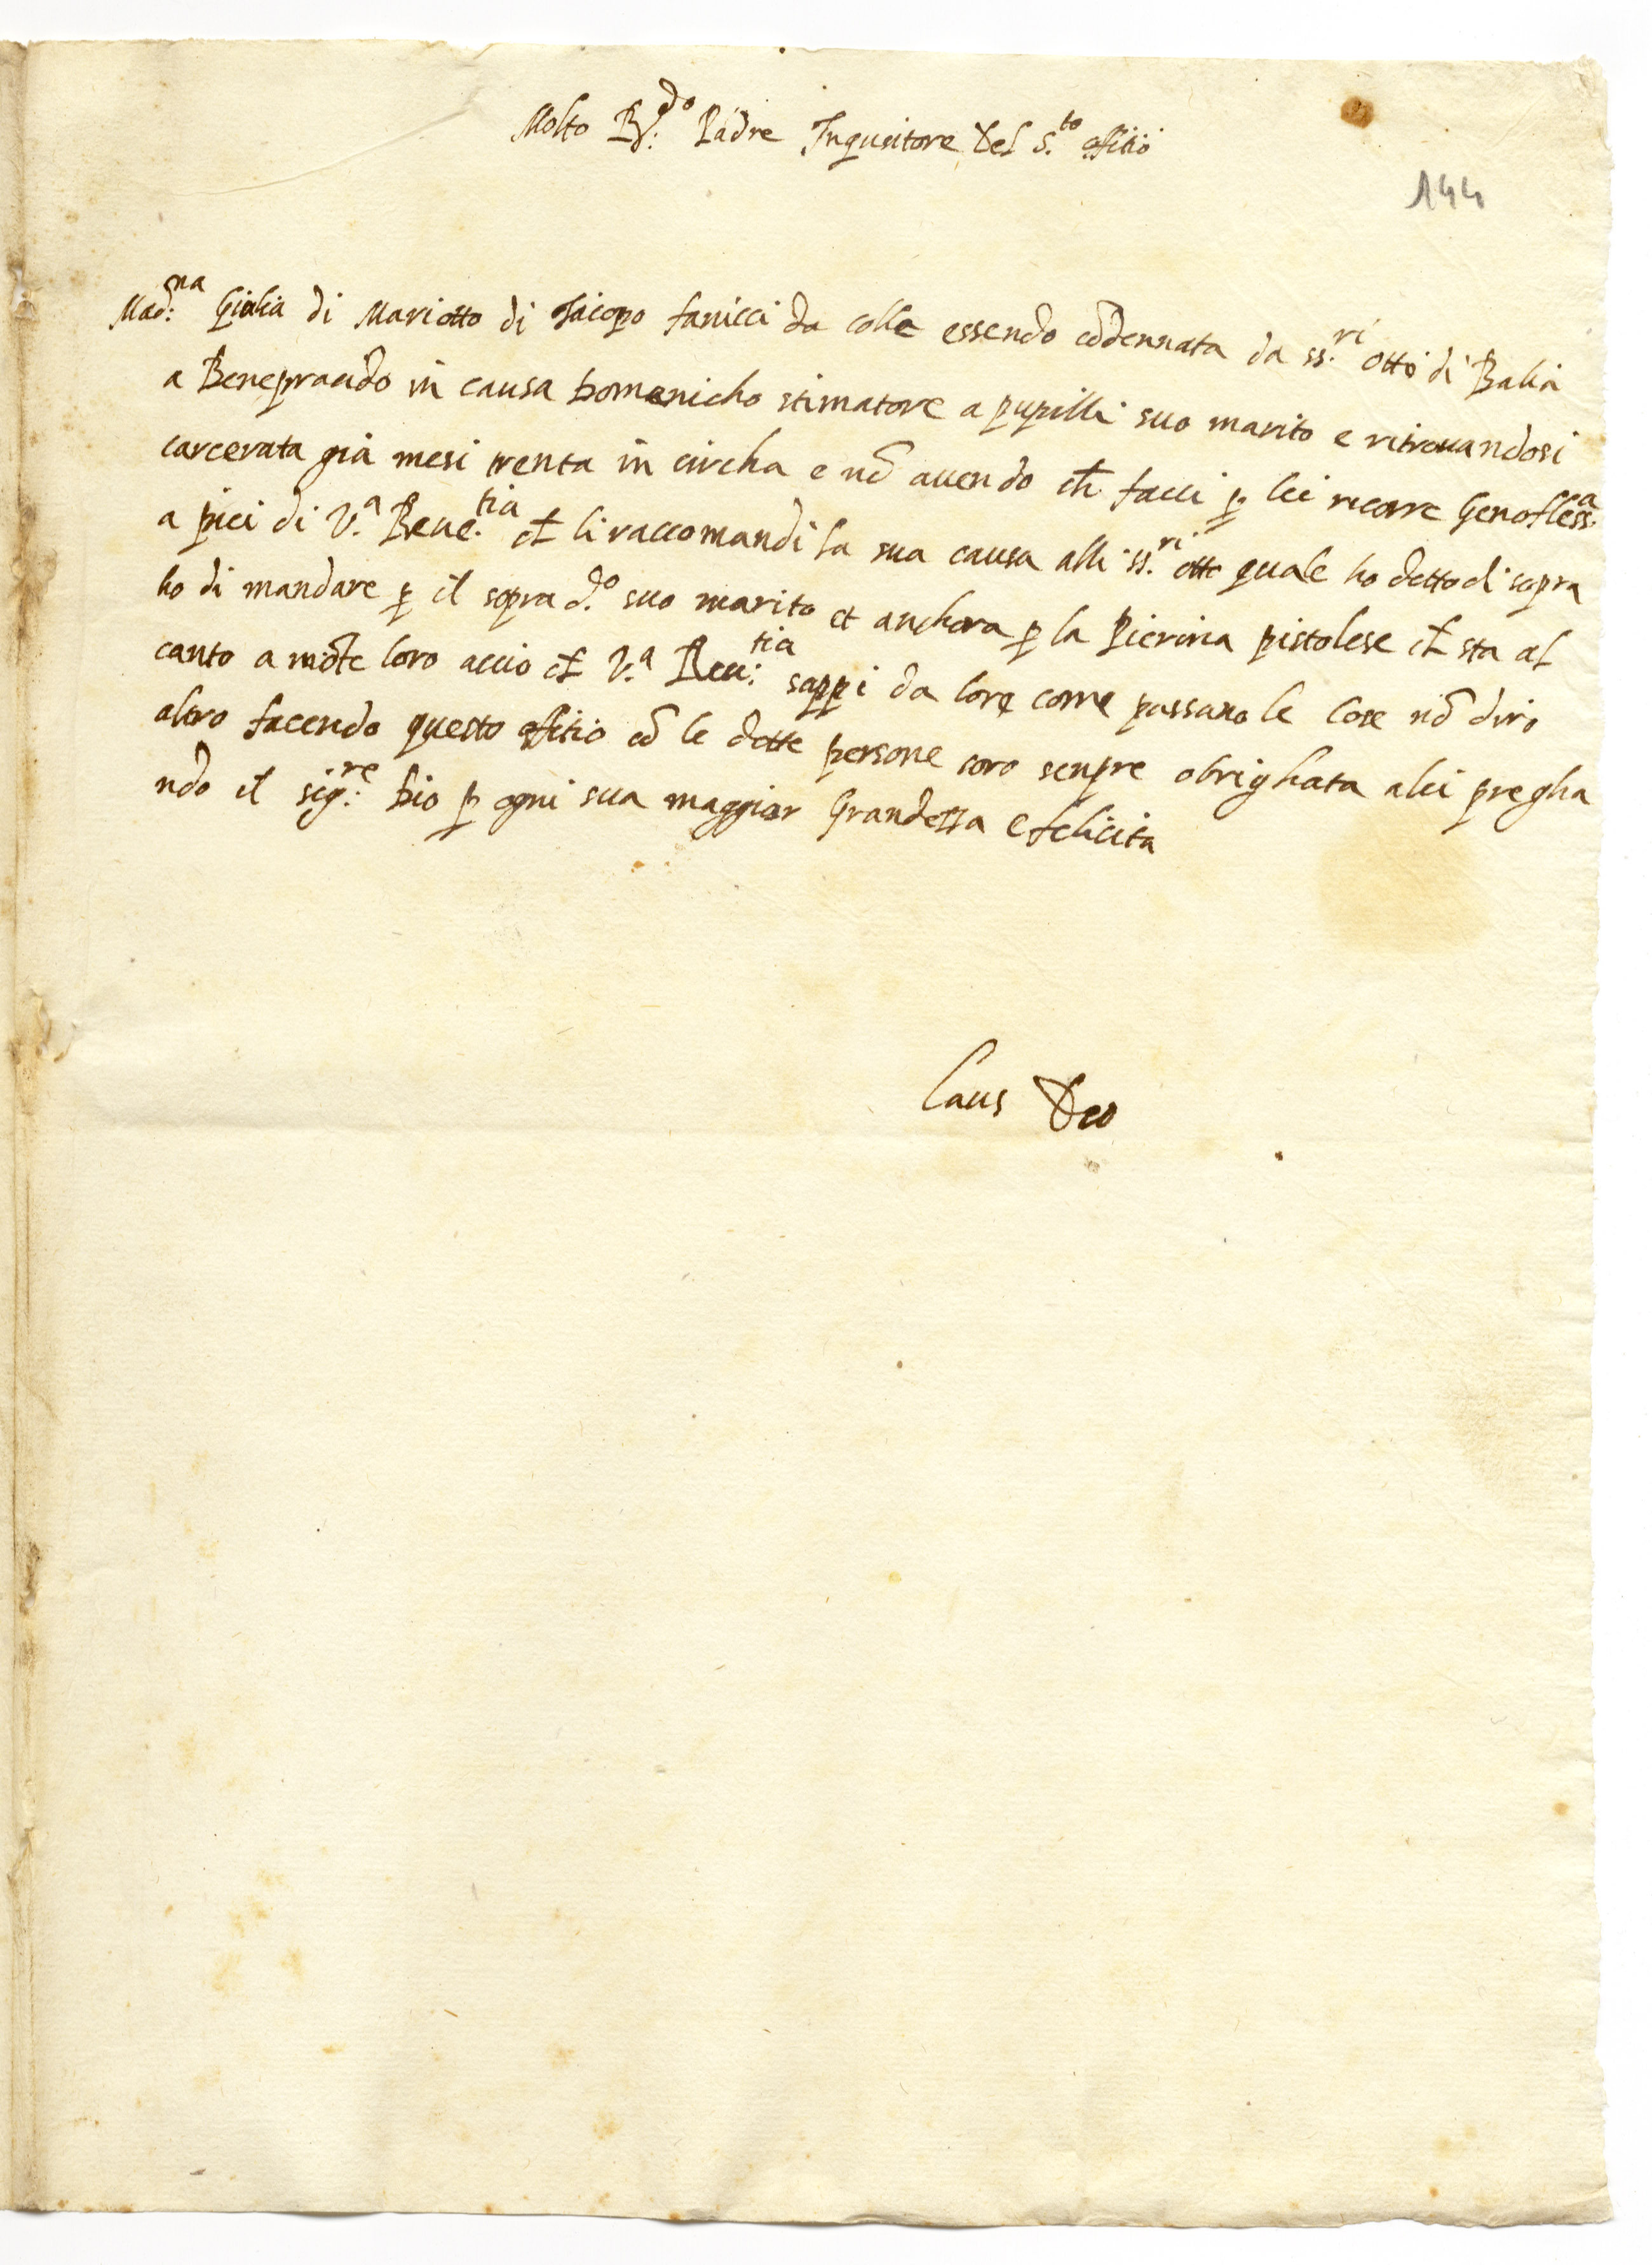 Molto R.do Padre Inquisitore del S.to offitio
144
Mad:na Giulia di Mariotto di Jacopo fanicci da colle essendo cōdennata da ss.ri otto di Balia
a Benepracido in causa Domenicho stimatore a pupilli suo marito e ritrouandosi
carcerata già mesi trenta in circha e nō auendo ch facci p lei ricorre Genofless.a
a piei di V.a Reue.tia ch li raccomandi la sua causa alli ss.ri otto quale ho detto di sopra
ho di mandare p il sopra d.o suo marito et anchora p la Pierina pistolese ch sta al
canto a mōte loro accio ch V.a Reu:tia sappi da loro come passano le cose nō diro
altro facendo questo offitio cō le dette persone soro senpre obrighata a lei pregha
ndo il sig:re Dio p ogni sua maggior Grandezza e felicita
Laus Deo